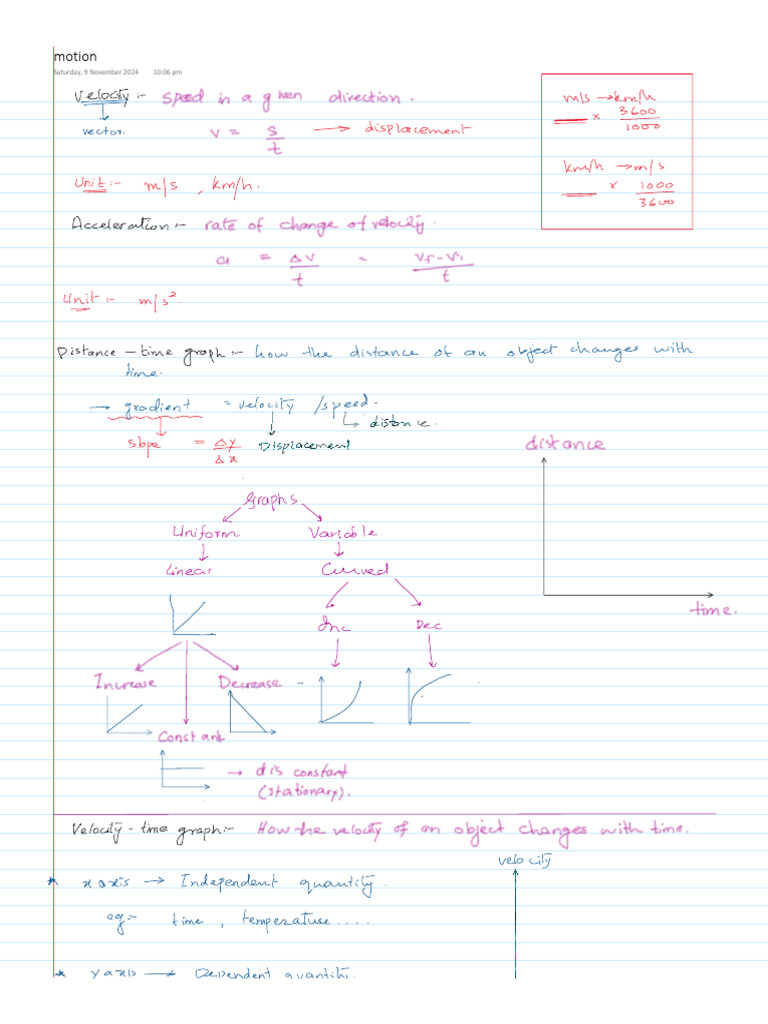 motion
Saturday, 9 November 2024 10:06 pm
Velocity :- speed in a given direction.
vector. v = s/t → displacement
m/s → km/h
___ × 3600/1000
km/h → m/s
___ × 1000/3600
Unit :- m/s , km/h.
Acceleration :- rate of change of velocity.
a = Δv/t = vf - vi/t
Unit :- m/s²
Distance - time graph :- how the distance of an object changes with
time.
→ gradient = velocity /speed.
↳ distance.
slope = Δy/Δx Displacement
distance
time.
Graphs
Uniform Variable
Linear Curved
Inc Dec
Increase Decrease -
Constant
→ dis constant
(stationary).
Velocity - time graph :- How the velocity of an object changes with time.
velocity
* x axis → Independent quantity.
eg:- time , temperature....
* y axis → Dependent quantity.